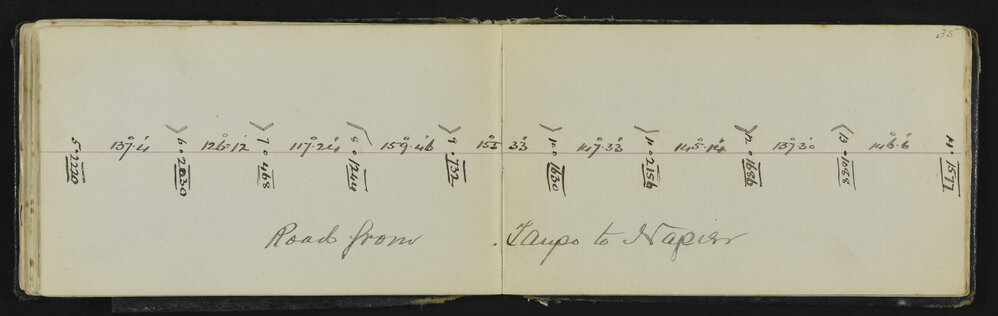 35
5 · 2220 137·4 6 · 2030 126·12 7 · 468 117·24 8 · 1244 159·46 9 · 732 155 33 10 · 1630 147·33 11 · 2156 145·14 12 · 1686 137·30 13 · 1088 146·6 14 · 1577
Road from Taupo to Napier